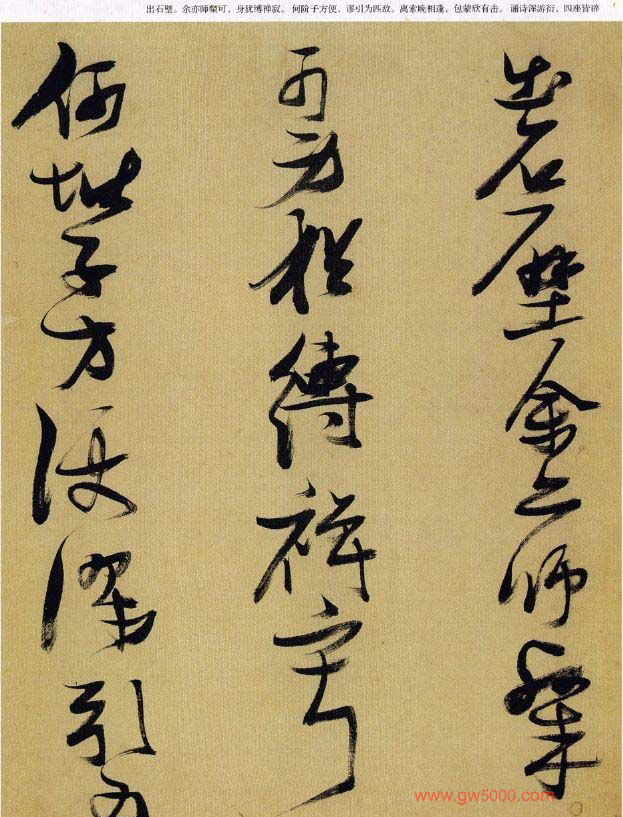 出石壁。余亦师粲可，身犹缚禅寂。何阶子方便，谬引为匹敌。离索晚相逢，包蒙欣有击。诵诗浑游衍，四座皆辟
出石壁余亦師粲
可身猶縛禪寂
何階子方便謬引為
www.gw5000.com